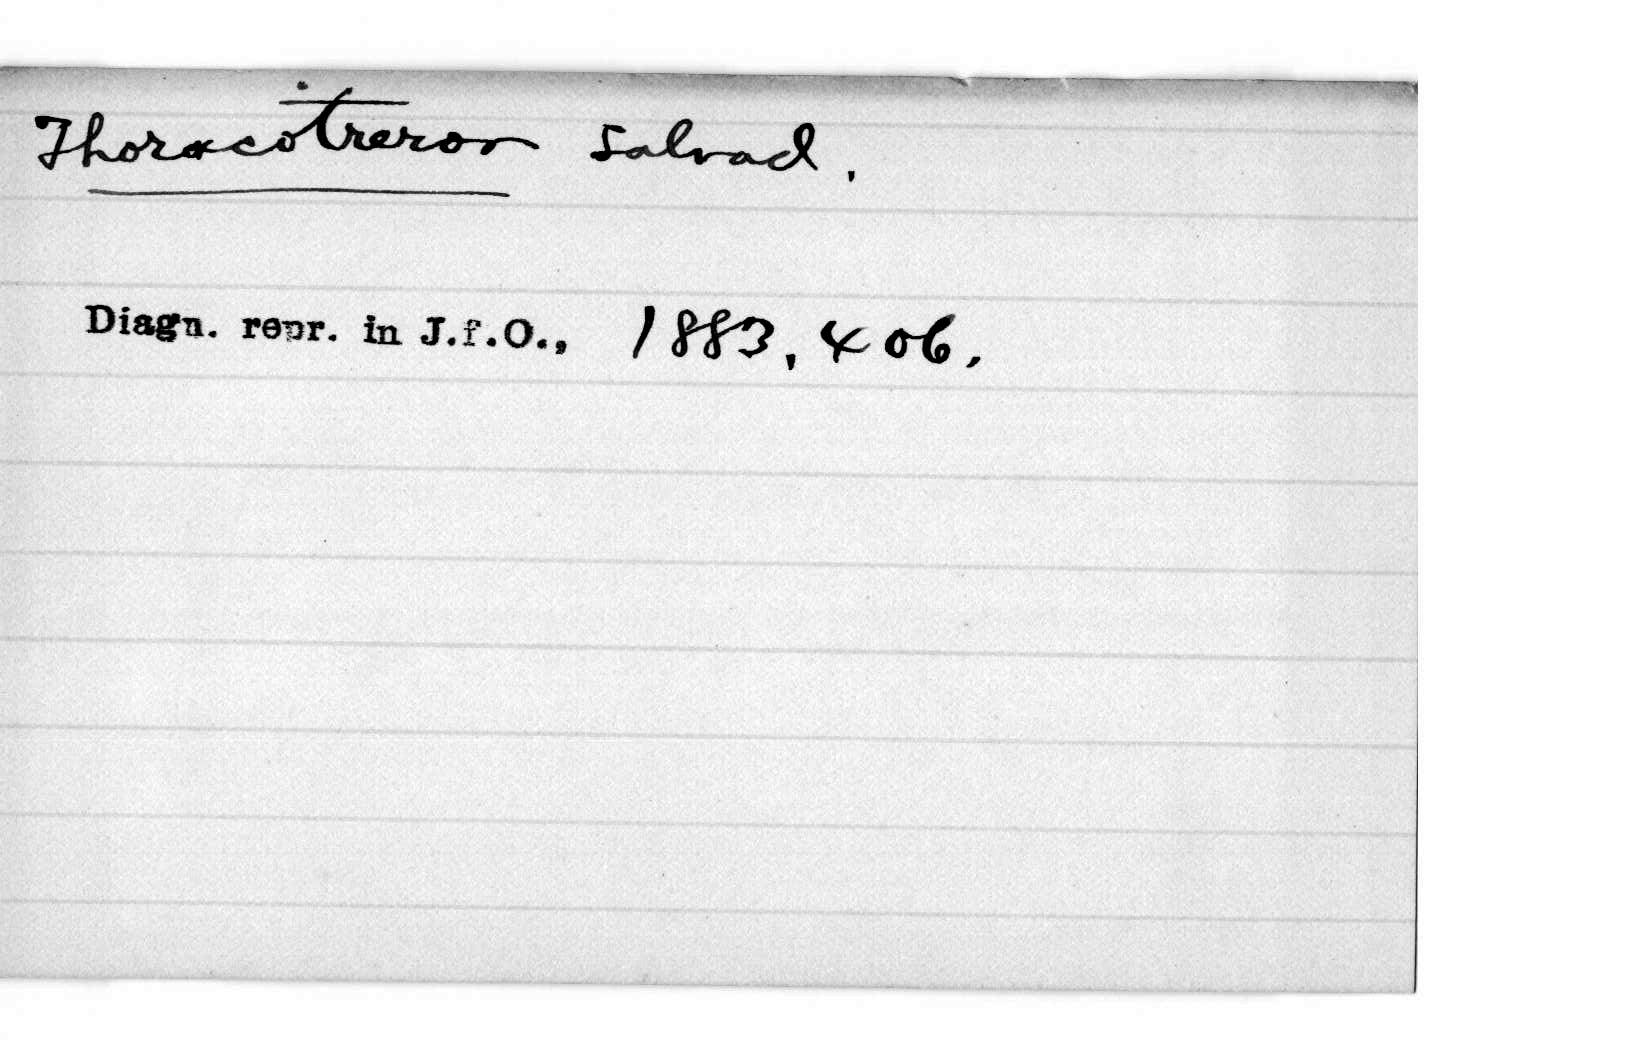 Thoracotreron Salvad.
Diagn. repr. in J.f.O., 1883, 406.